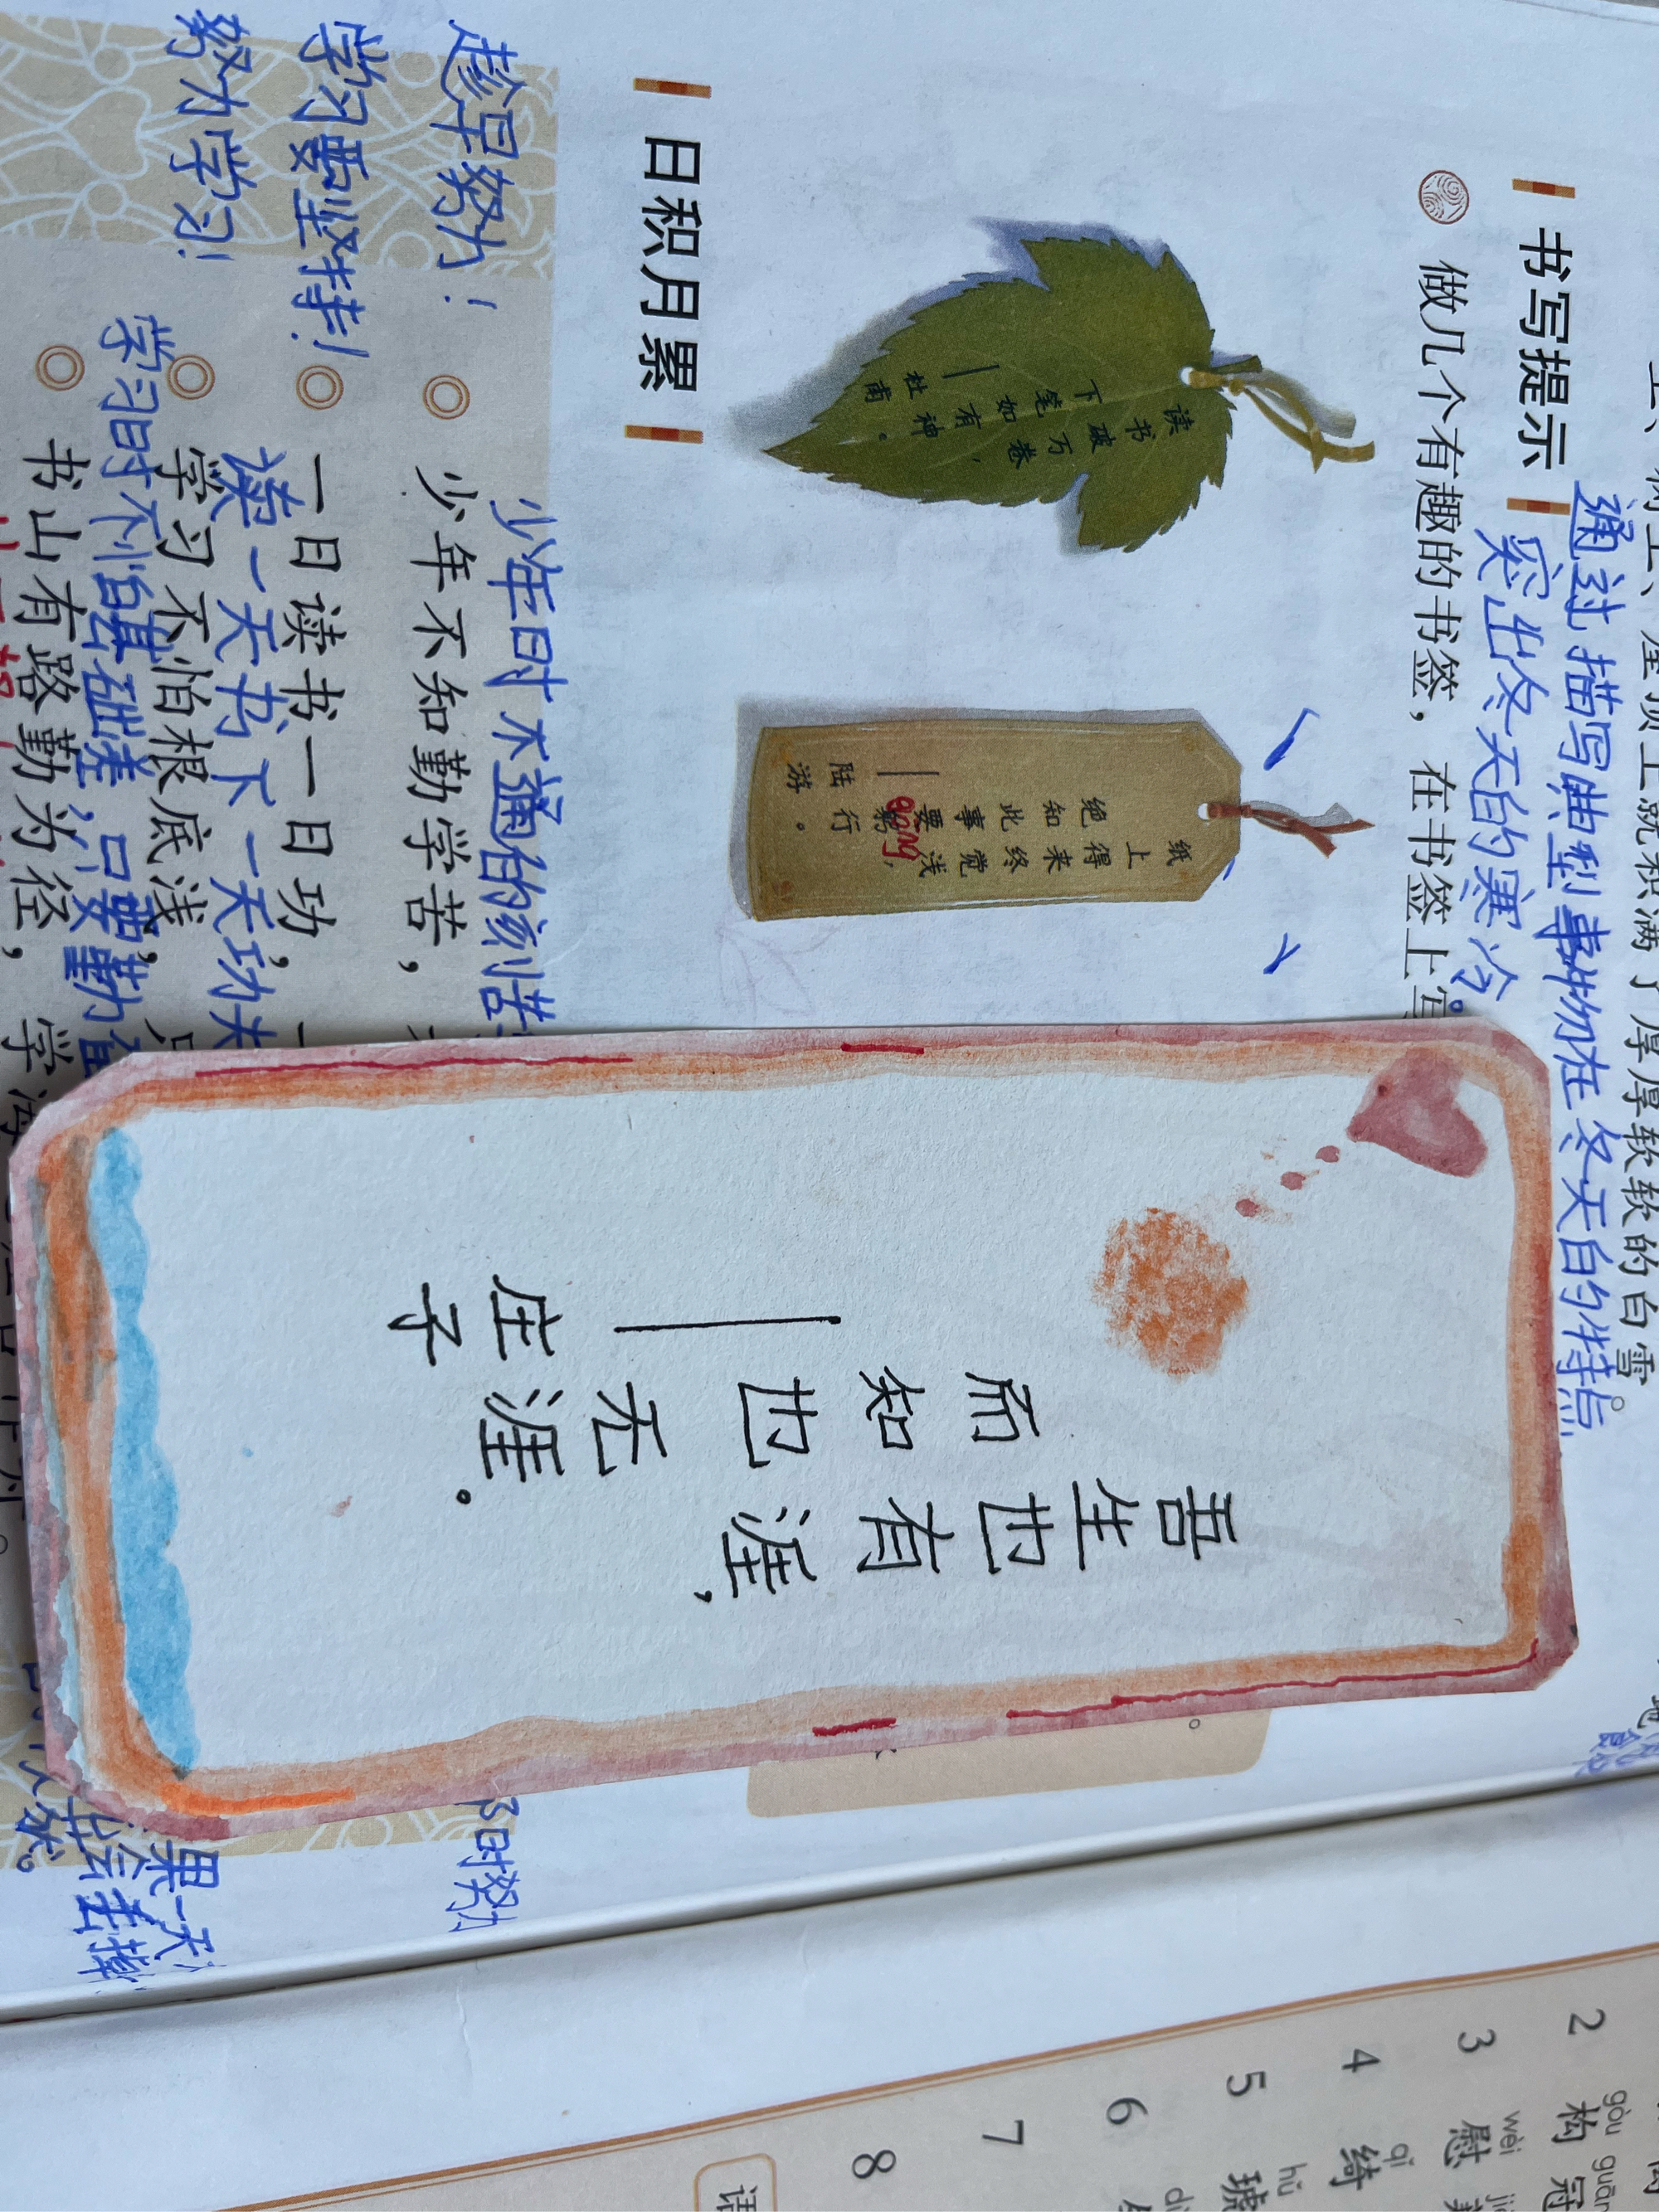 上就积满了厚厚软软的白雪。
通过描写典型事物在冬天的特点
突出冬天的寒冷。
书写提示
做几个有趣的书签，在书签上
读书破万卷，
下笔如有神。
——杜甫
纸上得来终觉浅，
绝知此事要躬行。
gōng
——陆游
日积月累
少年时不通的刻苦
趁早努力！
少年不知勤学苦，
时努力
学习要坚持！
一日读书一日功，
读一天书下一天功夫
努力学习！
学习不怕根底浅，
学习时不怕基础凑，只要勤奋
果一天
书山有路勤为径，
学海
吾生也有涯，
而知也无涯。
——庄子
2
gòu
构
guān
冠
3
wèi
慰
4
qǐ
绮
5
hǔ
琥
6
7
8
语